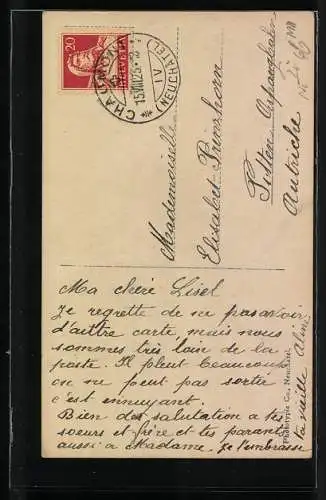 20
HELVETIA
CHAUMONT
15.VIII.25
IV
(NEUCHATEL)
Mademoiselle
Elisabet Prinzhorn
Autriche
Ma chère Lisel
Je regrette de ne pas avoir
d'autre carte, mais nous
sommes très loin de la
poste. Il pleut beaucoup
on ne peut pas sortir
c'est ennuyant.
Bien des salutation a tes
soeurs et frère et tes parents
aussi a Madame. Je t'embrasse
ta vieille Aline
Phototypie Co., Neuchatel.